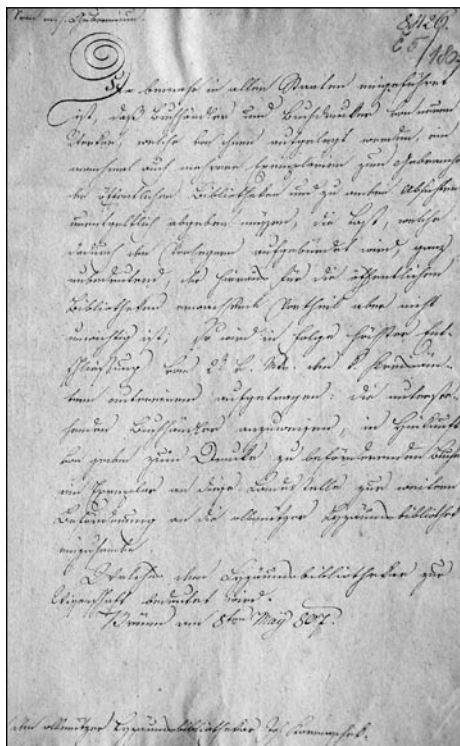 Vom m. s. Gubernium.
8426.
Da beinahe in allen Staaten eingeführet
ist, daß Buchhändler und Buchdrucker von neuen
Werken, welche von ihnen aufgelegt werden, ein
manchmal auch mehrere Exemplarien zum Gebrauche
der öffentlichen Bibliotheken und zu andern Absichten
unentgeltlich abgeben müßen, die Last, welche
dadurch den Verlegern aufgebürdet wird, ganz
unbedeutend, der hieraus für die öffentlichen
Bibliotheken erwachsende Vortheil aber nicht
unwichtig ist; So wird in Folge höchster Ent-
schließung vom 28 v. Mts. den k. Kreisäm-
tern aufgetragen: die unterste-
henden Buchhändler anzuweisen, in Hinkunft
von jeden zum Drucke zu befördernden Buche
ein Exemplar an diese Landesstelle zur weitern
Beförderung an die ollmützer Lyzäumsbibliothek
einzusenden.
Welches dem Lyzäumsbibliothekar zur
Wissenschaft bedeutet wird.
Brünn am 8ten May 807.
Dem ollmützer Lyzäumsbibliothekar